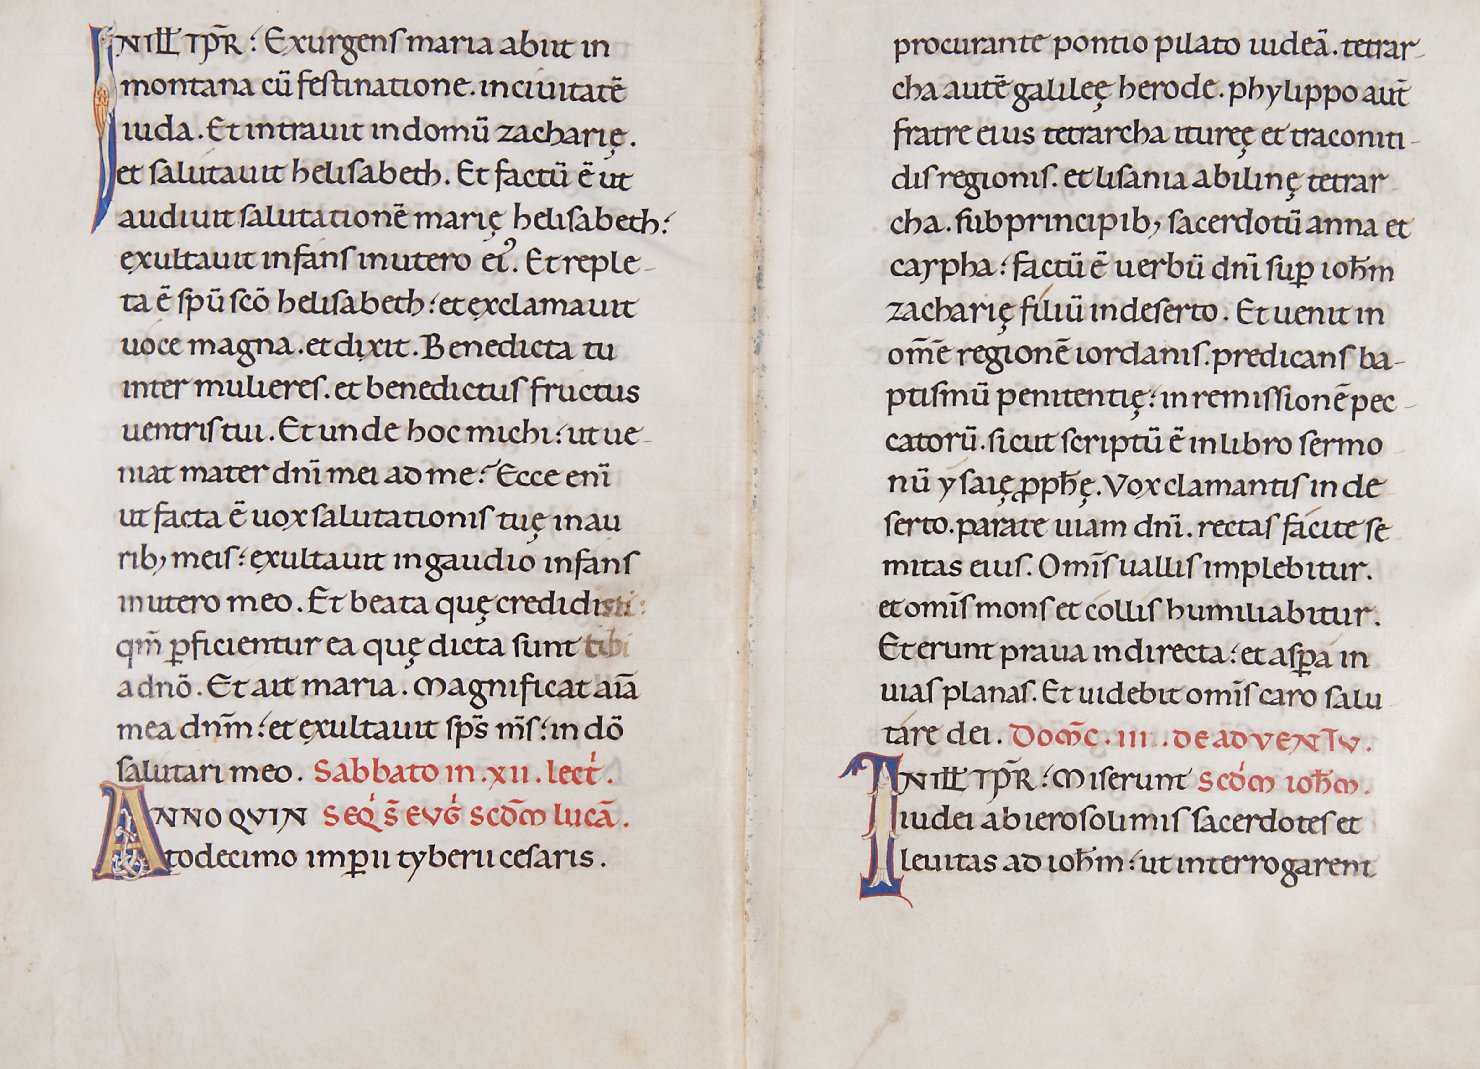 INILL̅ TP̅R : Exurgens maria abiit in
montana cū festinatione . in ciuitatē
iuda . Et intrauit in domū zacharię .
et salutauit helisabeth . Et factū ē ut
audiuit salutationē marię helisabeth :
exultauit infans in utero ei᾿ . Et reple-
ta ē sp̅u sc̅o helisabeth : et exclamauit
uoce magna . et dixit . Benedicta tu
inter mulieres . et benedictus fructus
uentris tui . Et unde hoc michi : ut ue-
niat mater dn̅i mei ad me ? Ecce eni̅
ut facta ē uox salutationis tuę in au
rib; meis : exultauit in gaudio infans
in utero meo . Et beata quę credidisti :
qm̅ ꝑficientur ea quę dicta sunt tibi
a dn̅o . Et ait maria . Magnificat ai̅a
mea dn̅m : et exultauit sp̅s m̅s : in dō
salutari meo . Sabbato in . xii . lect̅ .
ANNO QVIN SEQ̅ S̅ EVG̅ SCD̅M lucā .
todecimo imꝑii tyberii cesaris .
procurante pontio pilato iudeā . tetrar-
cha autē galileę herode . phylippo aut̅
fratre eius tetrarcha itureę et traconiti-
dis regionis . et lisania abilinę tetrar
cha . sub principib; sacerdotū anna et
caypha : factū ē uerbū dn̅i suꝑ ioh̅m
zacharię filiū in deserto . Et uenit in
om̅e regionē iordanis . predicans ba-
ptismū penitentię : in remissionē pec-
catorū . sicut scriptū ē in libro sermo
nū ysaię ꝓph̅ę . Vox clamantis in de
serto . parate uiam dn̅i . rectas facite se
mitas eius . Om̅is uallis implebitur .
et om̅is mons et collis humiliabitur .
Et erunt praua in directa : et asꝑa in
uias planas . Et uidebit om̅is caro salu-
tare dei . Dom̅c . iii . DE ADVENTV .
INILL̅ TP̅R : Miserunt SCD̅M ioh̅m .
iudei ab ierosolimis sacerdotes et
leuitas ad ioh̅m : ut interrogarent